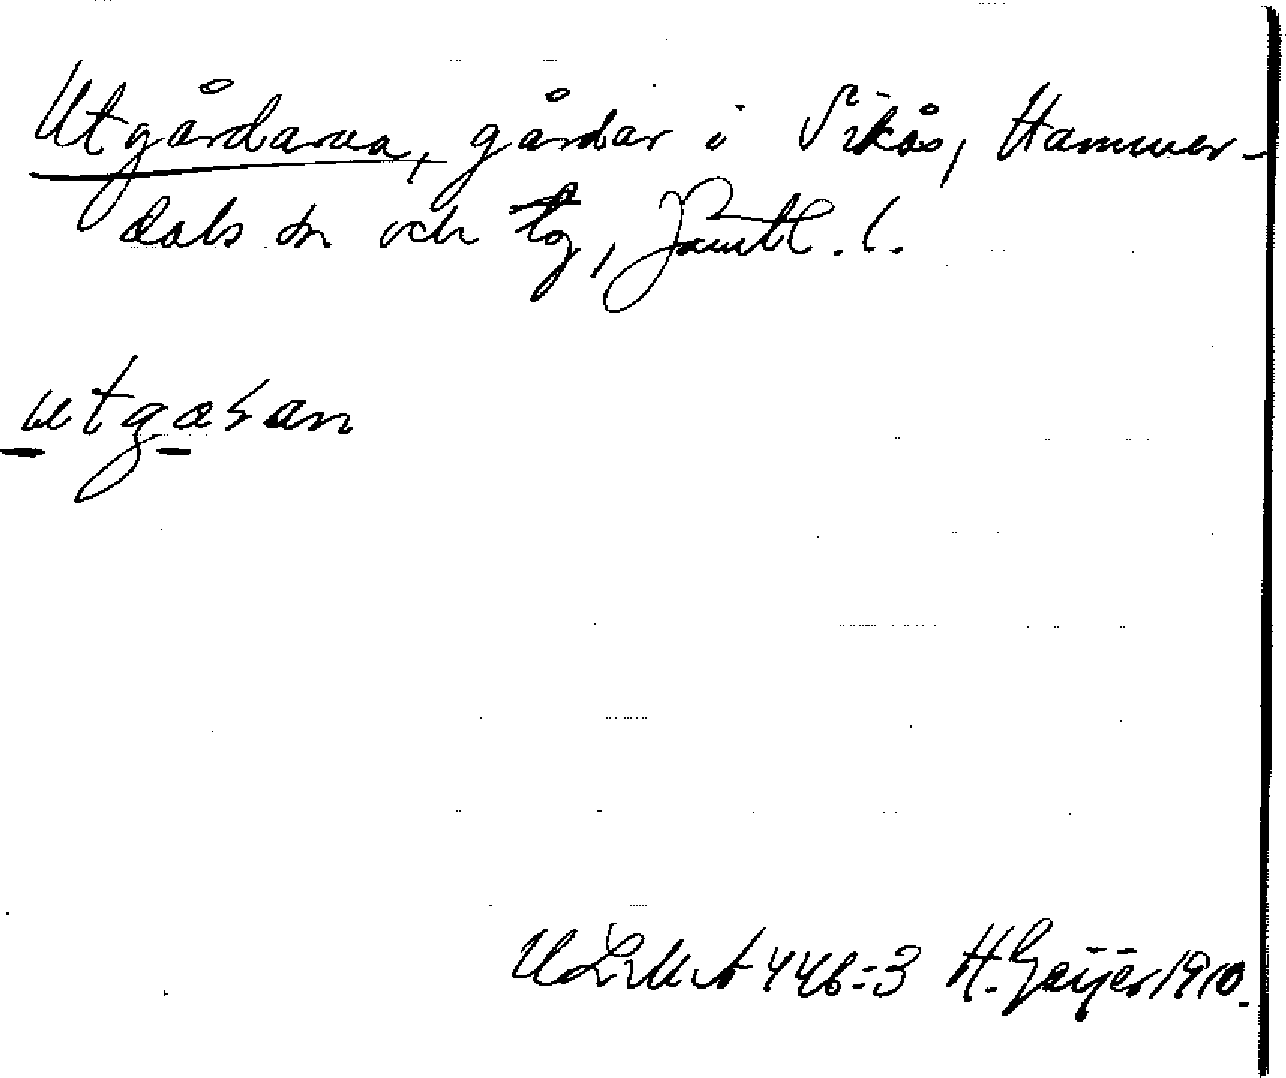 Utgårdarna, gårdar i Sikås, Hammer-
dals sn och tg, Jämtl. l.
utgaɽan
ULMA 446:3 H. Geijer 1910.